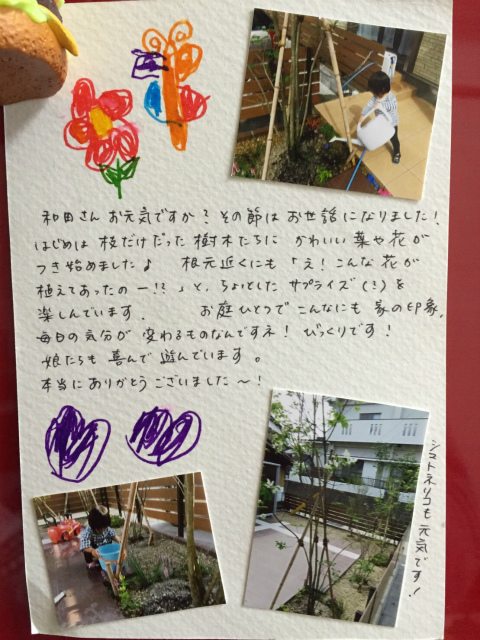 和田さん お元気ですか？その節は お世話になりました！
はじめは 枝だけだった 樹木たちに かわいい 葉や花が
つき始めました♪ 根元近くにも「え！こんな花が
植えてあったのー!？」と、ちょっとした サプライズ(!)を
楽しんでいます. お庭ひとつで こんなにも 家の印象,
毎日の気分が 変わるものなんですネ！ びっくりです！
娘たちも 喜んで 遊んでいます。
本当に ありがとう ございました〜！
シマトネリコも 元気です！